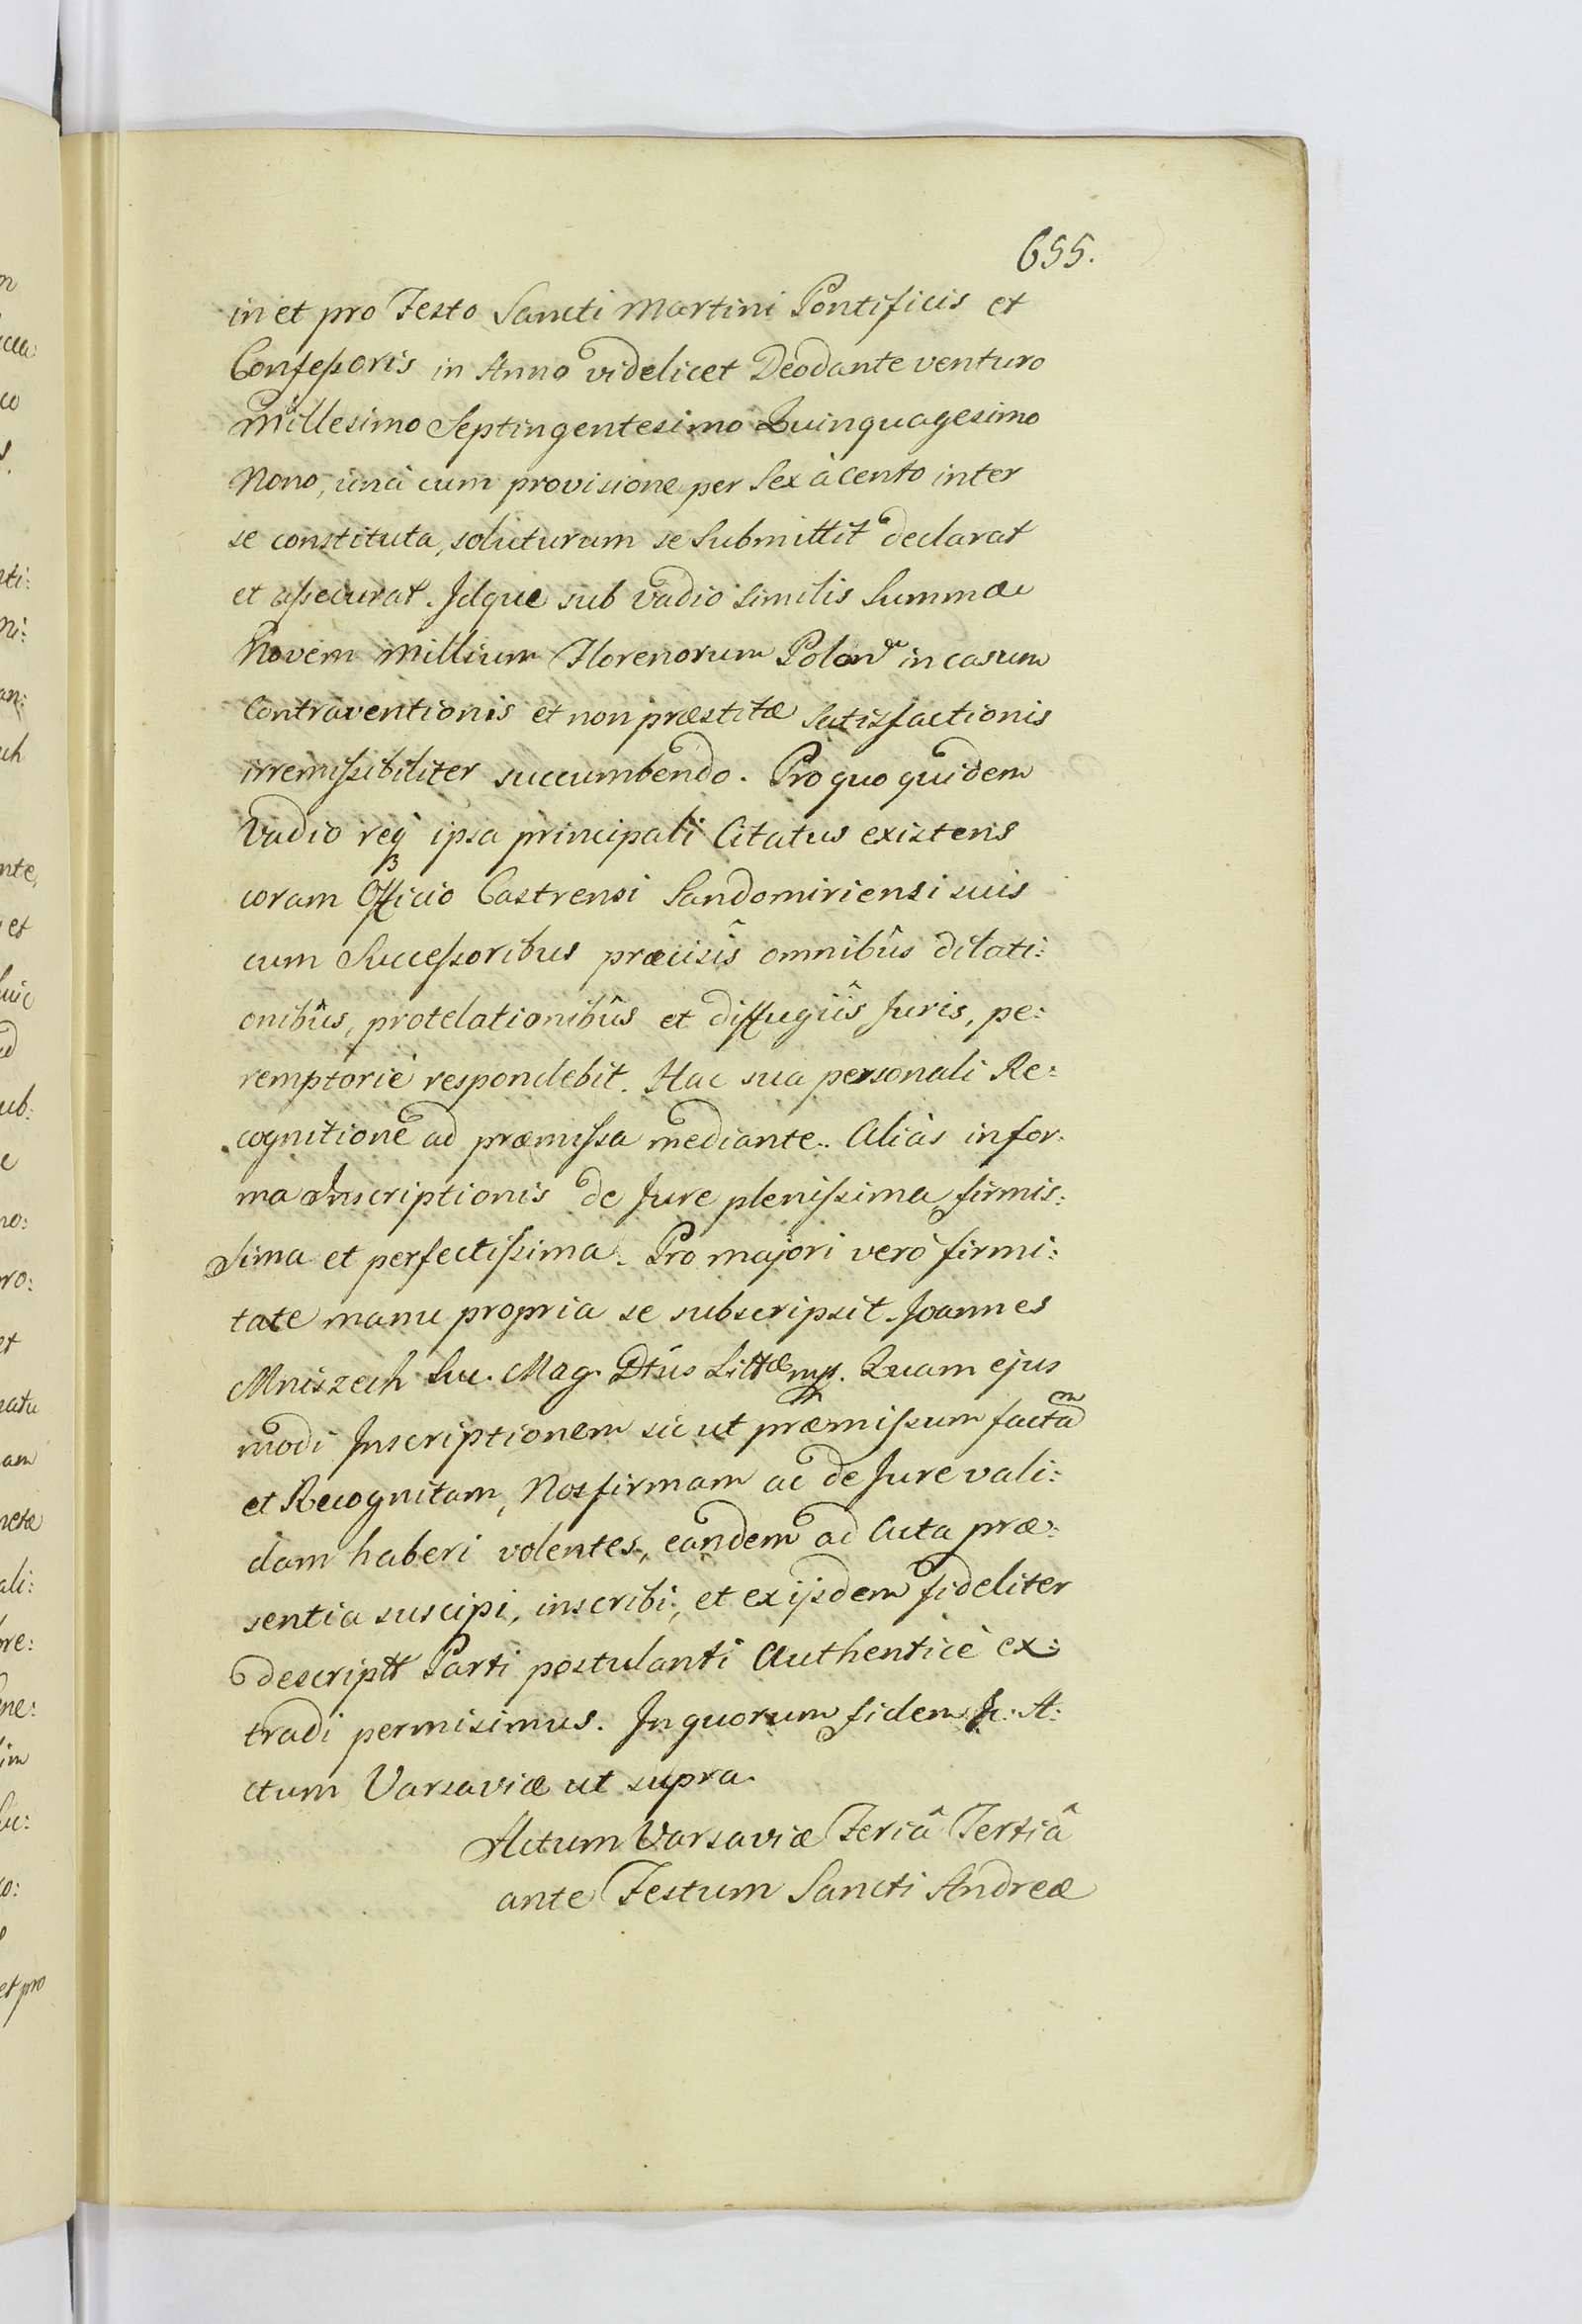 655.
in et pro Festo Sancti Martini Pontificis et
Confeßoris in Anno videlicet Deodante venturo
Millesimo Septingentesimo Quinquagesimo
Nono, unà cum provisione per Sex à cento inter
se constituta, soluturum se Submittit declarat
et aßecurat. Idque sub vadio Similis Summæ
Novem Millium Florenorum Polon in casum
Contraventionis et non præstitæ Satisfactionis
irremißibiliter succumbendo. Pro quo quidem
Vadio req ipsa principali Citatus existens
coram Officio Castrensi Sandomiriensi suis
cum Succeßoribus præcisîs omnibûs dilati:
onibûs, protelationibûs et diffugiîs Juris, pe:
remptoriè respondebit. Hac sua personali Re:
cognitione ad præmißa mediante. Aliàs in for:
ma Inscriptionis de Jure plenißima, firmis:
sima et perfectißima. Pro majori verò firmi:
tate manu propria se subscripsit. Joannes
Mniszech Suc. Mag. Dtûs Littæ mp. Quam ejus
modi Inscriptionem sic ut præmißum factam
et Recognitam, Nos firmam ac de Jure vali:
dam haberi volentes, eandem ad Acta præ:
sentia suscipi, inscribi, et ex ijsdem fideliter
descriptt Parti postulanti Authenticè ex:
tradi permisimus. In quorum fidem &c. A:
ctum Varsaviæ ut supra.
Actum Varsaviæ Feriâ Tertiâ
ante Festum Sancti Andreæ